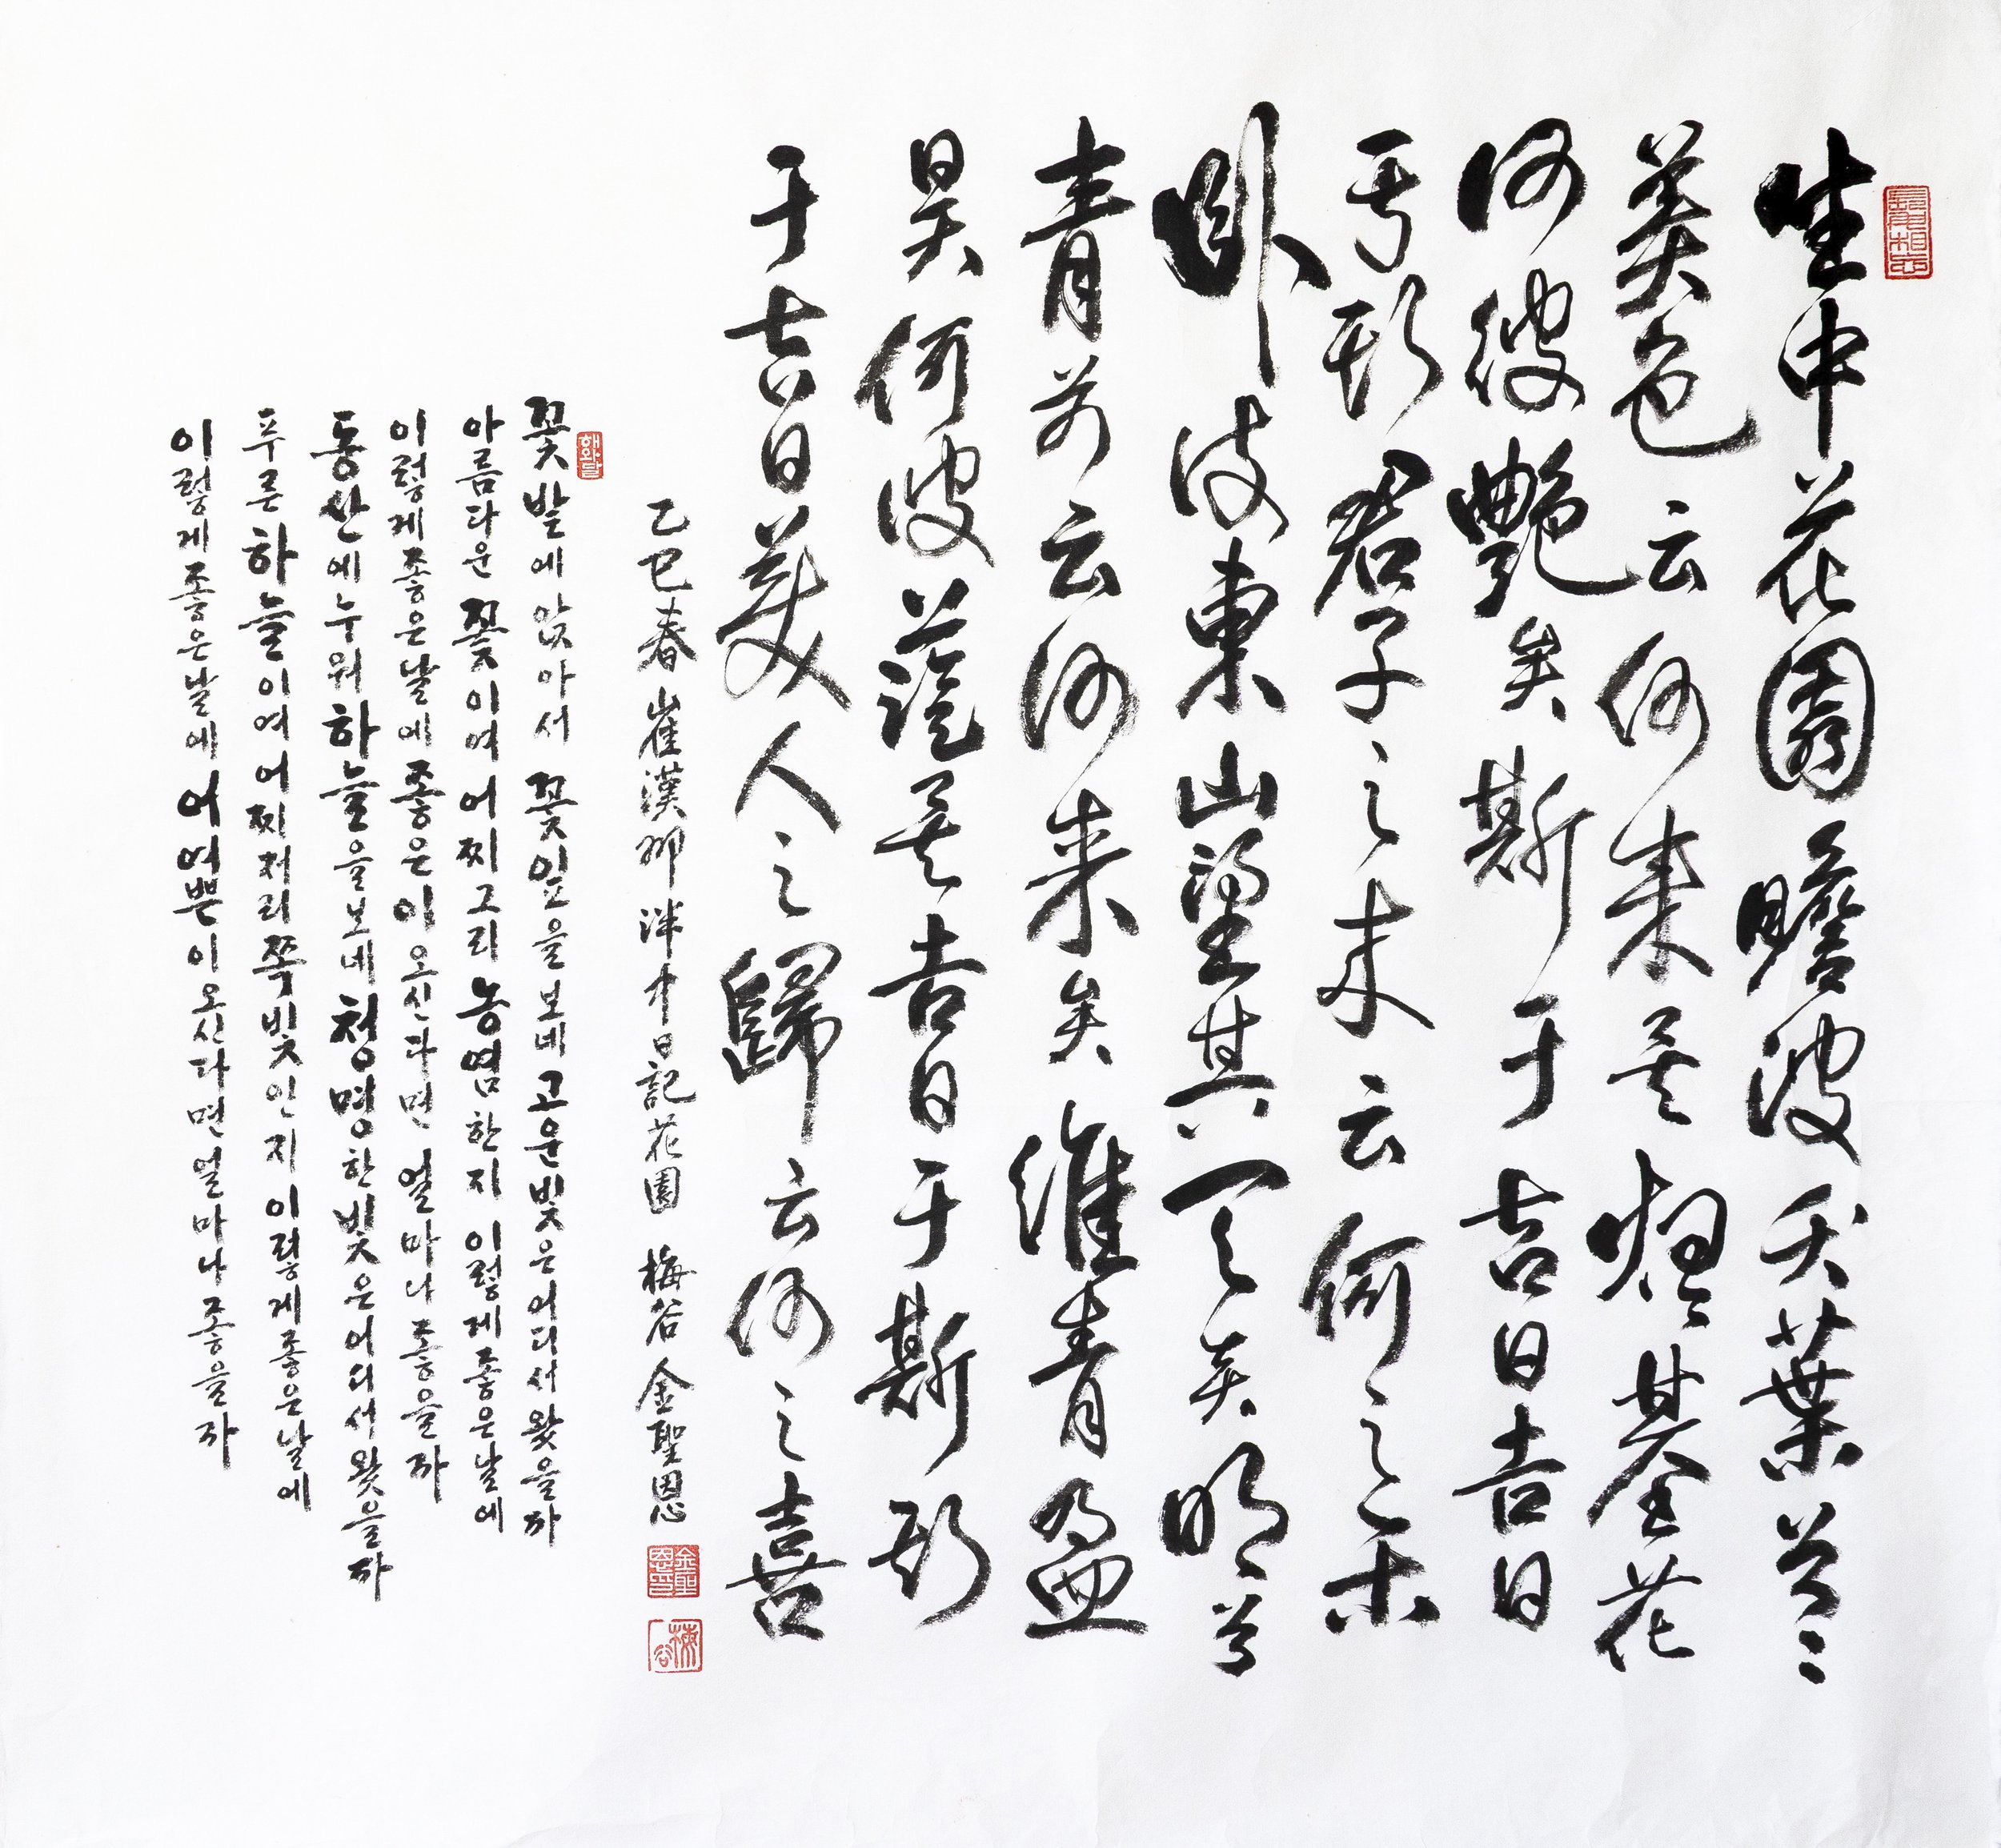 坐中花園瞻彼夭葉兮〻
美色云何来矣其全花
何彼艶矣斯于吉日吉日
于斯君子之来云何之樂
臥彼東山望其天矣明兮
青兮云何来矣維青乃盈
昊何彼矣吉日于斯斯
于吉日美人之歸云何之喜
乙巳春 崔漢卿 泮中日記 花園 梅谷 金聖恩
金聖恩印
梅谷
화담
꽃밭에 앉아서 꽃잎을 보네 고운 빛은 어디서 왔을까
아름다운 꽃이여 어찌 그리 농염한지 이렇게 좋은 날에
이렇게 좋은 날에 좋은 이 오신다면 얼마나 좋을까
동산에 누워 하늘을 보네 청명한 빛은 어디서 왔을까
푸른 하늘이여 어찌 저리 쪽빛인지 이렇게 좋은 날에
이렇게 좋은 날에 어여쁜 이 오신다면 얼마나 좋을까